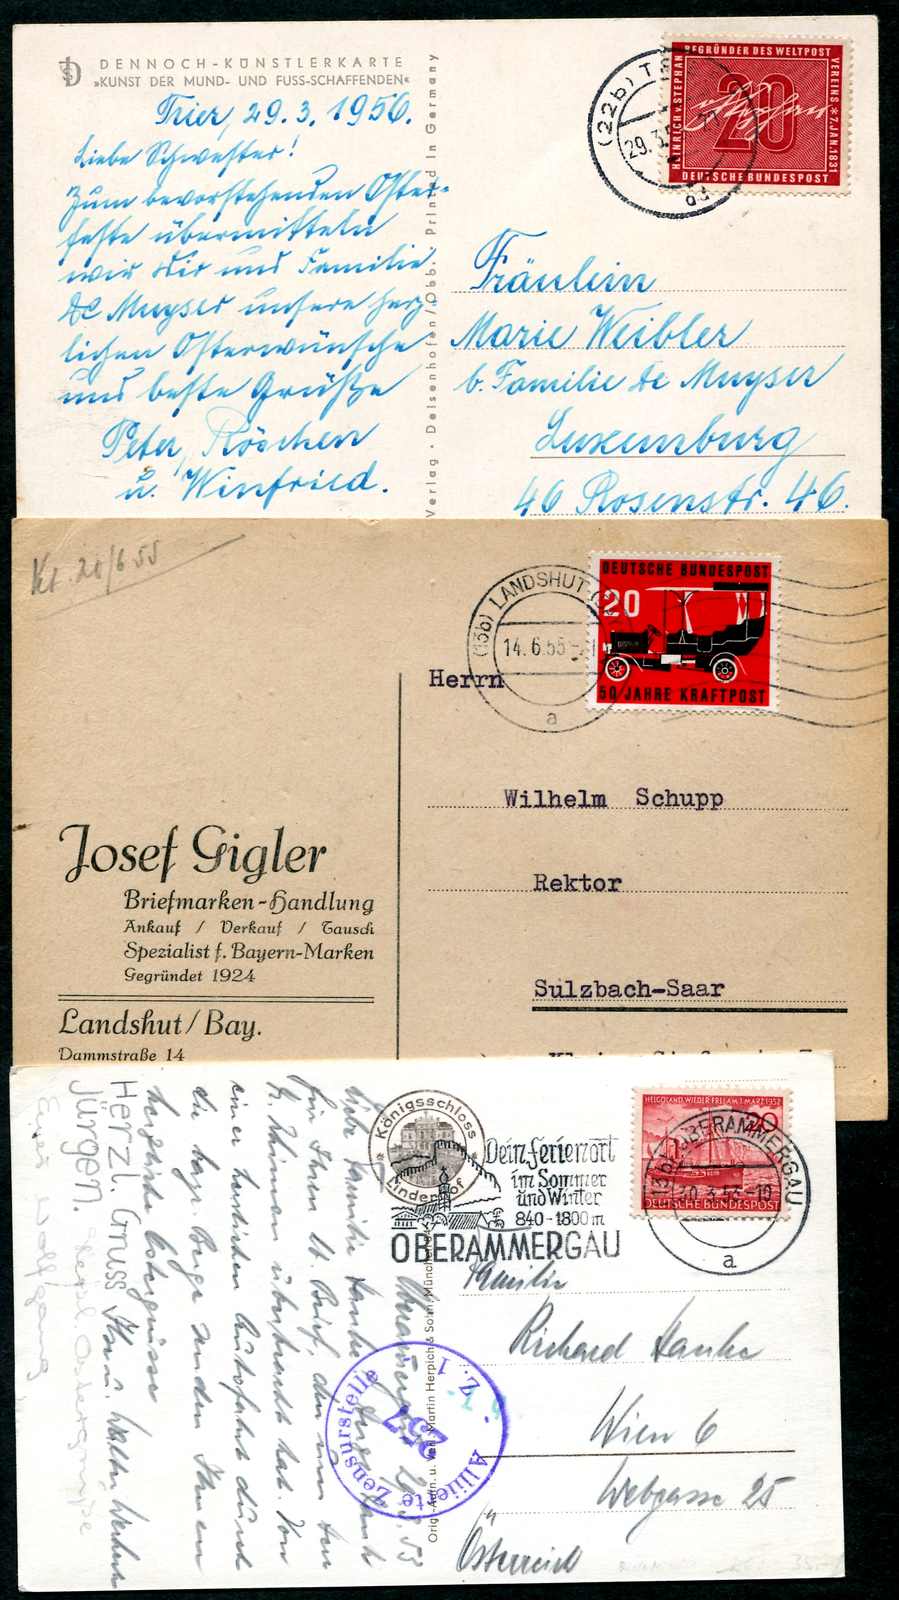 DENNOCH-KÜNSTLERKARTE
»KUNST DER MUND- UND FUSS-SCHAFFENDEN«
Trier, 29.3.1956.
Liebe Schwester!
Zum bevorstehenden Oster-
feste übermitteln
wir Dir und Familie
de Muyser unsere herz-
lichen Osterwünsche
und beste Grüße
Peter, Röschen
u. Winfried.
Verlag · Deisenhofen/Obb. Printed in Germany
(22b) T
29.3.5
BEGRÜNDER DES WELTPOST
VEREINS * 7.JAN.1831
HEINRICH v. STEPHAN
20
DEUTSCHE BUNDESPOST
Fräulein
Marie Weibler
b. Familie de Muyser
Luxemburg
46 Rosenstr. 46.
20/6 55
(13b) LANDSHUT
14.6.55
a
DEUTSCHE BUNDESPOST
20
50 JAHRE KRAFTPOST
Herrn
Wilhelm Schupp
Rektor
Sulzbach-Saar
Josef Gigler
Briefmarken-Handlung
Ankauf / Verkauf / Tausch
Spezialist f. Bayern-Marken
Gegründet 1924
Landshut/Bay.
Dammstraße 14
Königsschloss
Linderhof
Dein Ferienort
im Sommer
und Winter
840-1800 m
OBERAMMERGAU
HELGOLAND WIEDER FREI AM 1. MÄRZ 1952
20
DEUTSCHE BUNDESPOST
(13b) OBERAMMERGAU
30.3.53-10
a
Familie
Richard Hanke
Wien 6
Webgasse 25
Österreich
Orig.-Aufn. u. Verl. Martin Herpich & Sohn, München
Alliierte Zensurstelle
257
1. Z.
für Ihren lb. Brief, den uns
einer herrlichen Autofahrt durch
die hags Berge senden Ihnen
herzliche Ostergrüsse
Herzl. Gruss Ihnen
Jürgen.
Euer Wolfgang